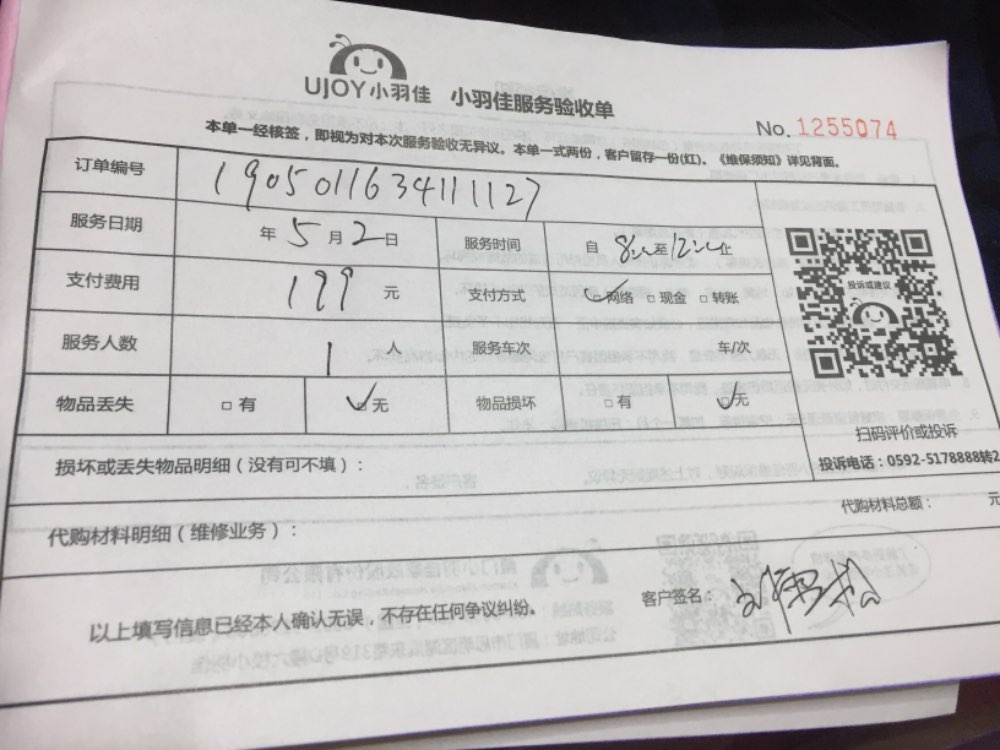 UJOY小羽佳 小羽佳服务验收单
No. 1255074
本单一经核签，即视为对本次服务验收无异议。本单一式两份，客户留存一份(红)。《维保须知》详见背面。
订单编号 1905011634111127
服务日期 年 5 月 2 日 服务时间 自 8:00 至 12:00 止
支付费用 199 元 支付方式 网络 □ 现金 □ 转账
服务人数 1 人 服务车次 车/次
物品丢失 □ 有 无 物品损坏 □ 有 无
投诉或建议
扫码评价或投诉
投诉电话：0592-5178888转2
损坏或丢失物品明细（没有可不填）：
代购材料明细（维修业务）：
代购材料总额： 元
以上填写信息已经本人确认无误，不存在任何争议纠纷。
客户签名：